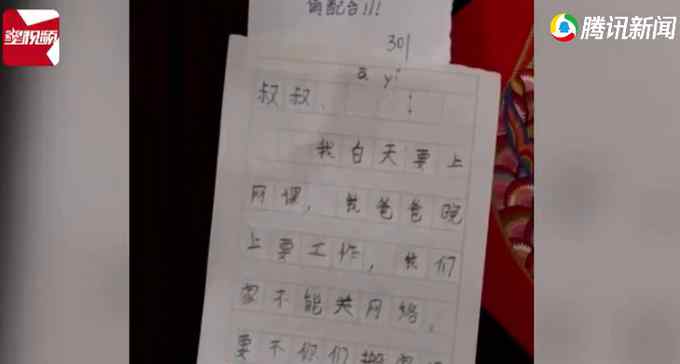 星视频
腾讯新闻
请配合!!!
301
a yi
叔叔、 :
我白天要上
网课，我爸爸晚
上要工作，我们
家不能关网络。
要不你们搬家